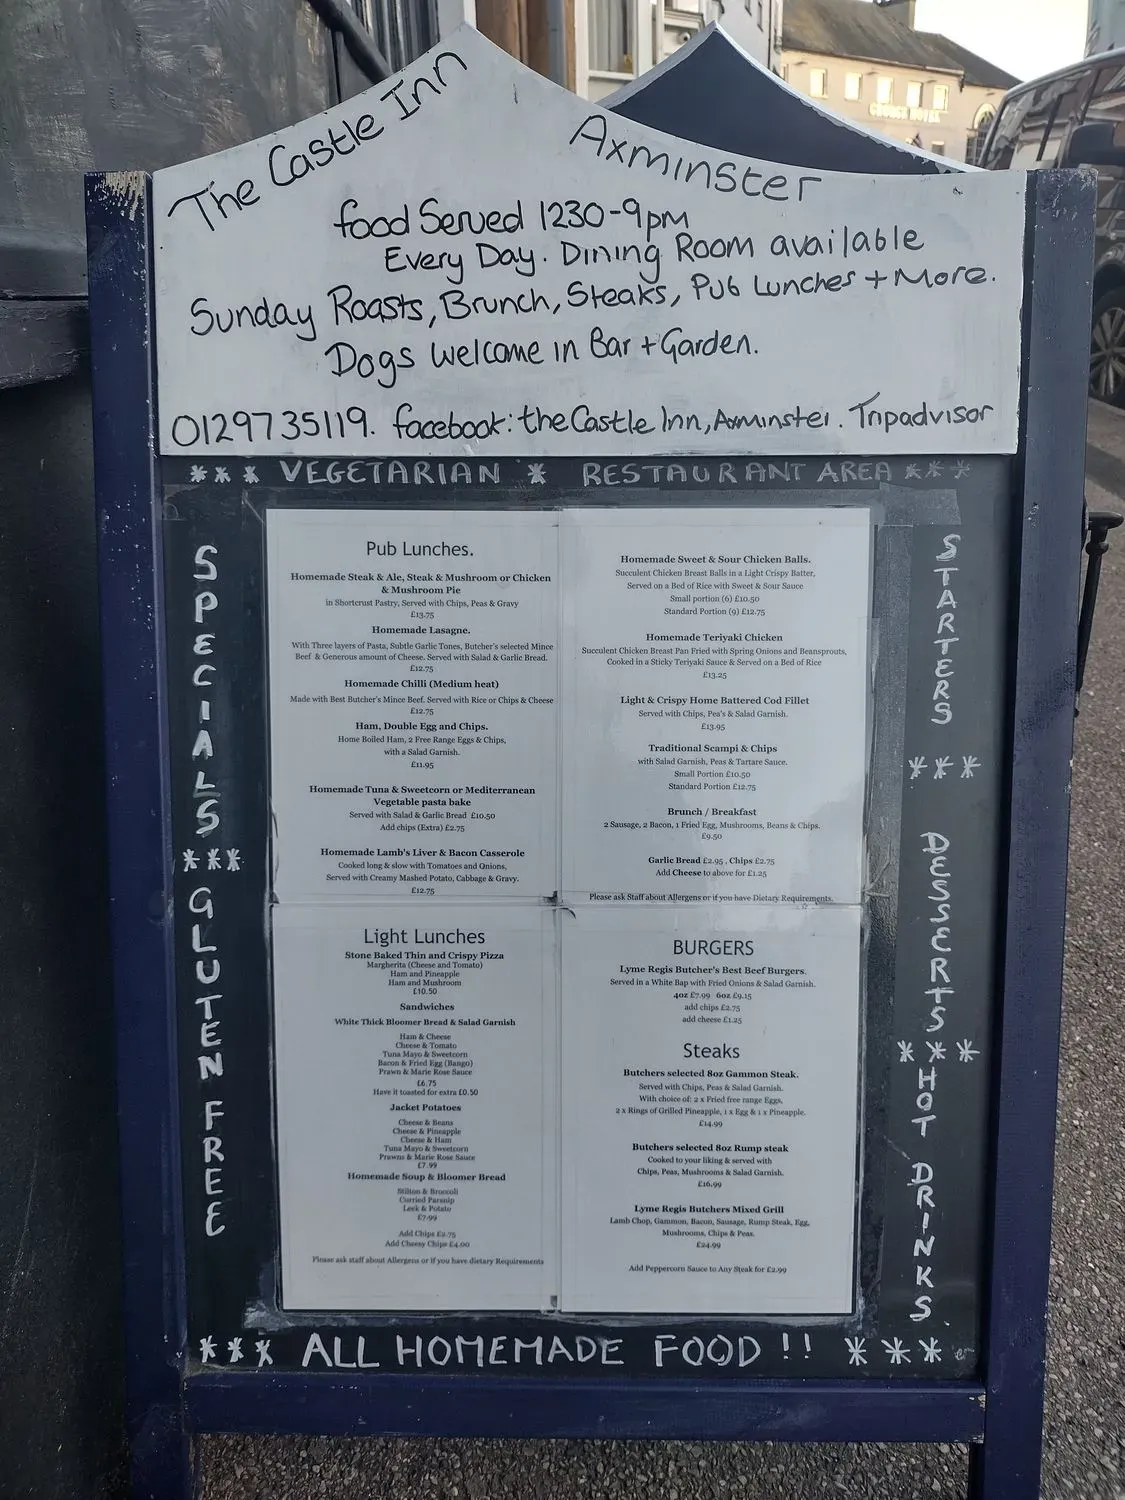 The Castle Inn
Axminster
food Served 1230-9pm
Every Day. Dining Room available
Sunday Roasts, Brunch, Steaks, Pub Lunches + More.
Dogs Welcome in Bar + Garden.
0129735119. facebook: the Castle Inn, Axminster. Tripadvisor
*** VEGETARIAN * RESTAURANT AREA ***
SPECIALS
***
GLUTEN FREE
Pub Lunches.
Homemade Steak & Ale, Steak & Mushroom or Chicken
& Mushroom Pie
in Shortcrust Pastry, Served with Chips, Peas & Gravy
£13.75
Homemade Lasagne.
With Three layers of Pasta, Subtle Garlic Tones, Butcher's selected Mince
Beef & Generous amount of Cheese. Served with Salad & Garlic Bread.
£12.75
Homemade Chilli (Medium heat)
Made with Best Butcher's Mince Beef. Served with Rice or Chips & Cheese
£12.75
Ham, Double Egg and Chips.
Home Boiled Ham, 2 Free Range Eggs & Chips,
with a Salad Garnish.
£11.95
Homemade Tuna & Sweetcorn or Mediterranean
Vegetable pasta bake
Served with Salad & Garlic Bread £10.50
Add chips (Extra) £2.75
Homemade Lamb's Liver & Bacon Casserole
Cooked long & slow with Tomatoes and Onions,
Served with Creamy Mashed Potato, Cabbage & Gravy.
£12.75
Homemade Sweet & Sour Chicken Balls.
Succulent Chicken Breast Balls in a Light Crispy Batter,
Served on a Bed of Rice with Sweet & Sour Sauce
Small portion (6) £10.50
Standard Portion (9) £12.75
Homemade Teriyaki Chicken
Succulent Chicken Breast Pan Fried with Spring Onions and Beansprouts,
Cooked in a Sticky Teriyaki Sauce & Served on a Bed of Rice
£13.25
Light & Crispy Home Battered Cod Fillet
Served with Chips, Pea's & Salad Garnish.
£13.95
Traditional Scampi & Chips
with Salad Garnish, Peas & Tartare Sauce.
Small Portion £10.50
Standard Portion £12.75
Brunch / Breakfast
2 Sausage, 2 Bacon, 1 Fried Egg, Mushrooms, Beans & Chips.
£9.50
Garlic Bread £2.95 , Chips £2.75
Add Cheese to above for £1.25
Please ask Staff about Allergens or if you have Dietary Requirements.
Light Lunches
Stone Baked Thin and Crispy Pizza
Margherita (Cheese and Tomato)
Ham and Pineapple
Ham and Mushroom
£10.50
Sandwiches
White Thick Bloomer Bread & Salad Garnish
Ham & Cheese
Cheese & Tomato
Tuna Mayo & Sweetcorn
Bacon & Fried Egg (Bango)
Prawn & Marie Rose Sauce
£6.75
Have it toasted for extra £0.50
Jacket Potatoes
Cheese & Beans
Cheese & Pineapple
Cheese & Ham
Tuna Mayo & Sweetcorn
Prawns & Marie Rose Sauce
£7.99
Homemade Soup & Bloomer Bread
Stilton & Broccoli
Curried Parsnip
Leek & Potato
£7.99
Add Chips £2.75
Add Cheesy Chips £4.00
Please ask staff about Allergens or if you have dietary Requirements
BURGERS
Lyme Regis Butcher's Best Beef Burgers.
Served in a White Bap with Fried Onions & Salad Garnish.
4oz £7.99 6oz £9.15
add chips £2.75
add cheese £1.25
Steaks
Butchers selected 8oz Gammon Steak.
Served with Chips, Peas & Salad Garnish.
With choice of: 2 x Fried free range Eggs,
2 x Rings of Grilled Pineapple, 1 x Egg & 1 x Pineapple.
£14.99
Butchers selected 8oz Rump steak
Cooked to your liking & served with
Chips, Peas, Mushrooms & Salad Garnish.
£16.99
Lyme Regis Butchers Mixed Grill
Lamb Chop, Gammon, Bacon, Sausage, Rump Steak, Egg,
Mushrooms, Chips & Peas.
£24.99
Add Peppercorn Sauce to Any Steak for £2.99
STARTERS
***
DESSERTS
***
HOT DRINKS
*** ALL HOMEMADE FOOD !! ***